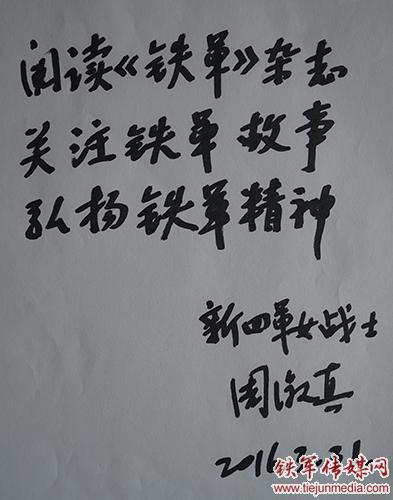 阅读《铁军》杂志
关注铁军故事
弘扬铁军精神
新四军女战士
周淑真
2016.3.31.
铁军传媒网
www.tiejunmedia.com